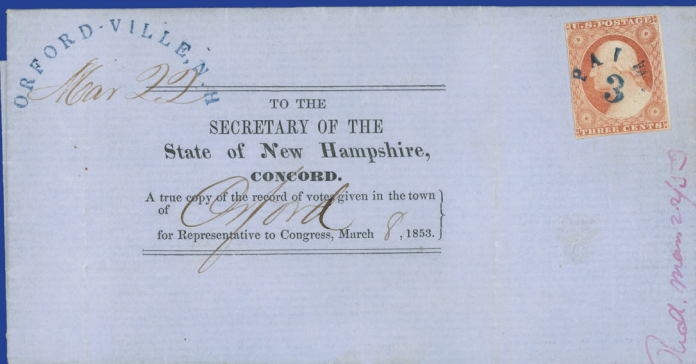 ORFORD-VILLE, N.H
Mar 22
U.S. POSTAGE
PAID
3
THREE CENTS
TO THE
SECRETARY OF THE
State of New Hampshire,
CONCORD.
A true copy of the record of votes given in the town
of Orford
for Representative to Congress, March 8, 1853.